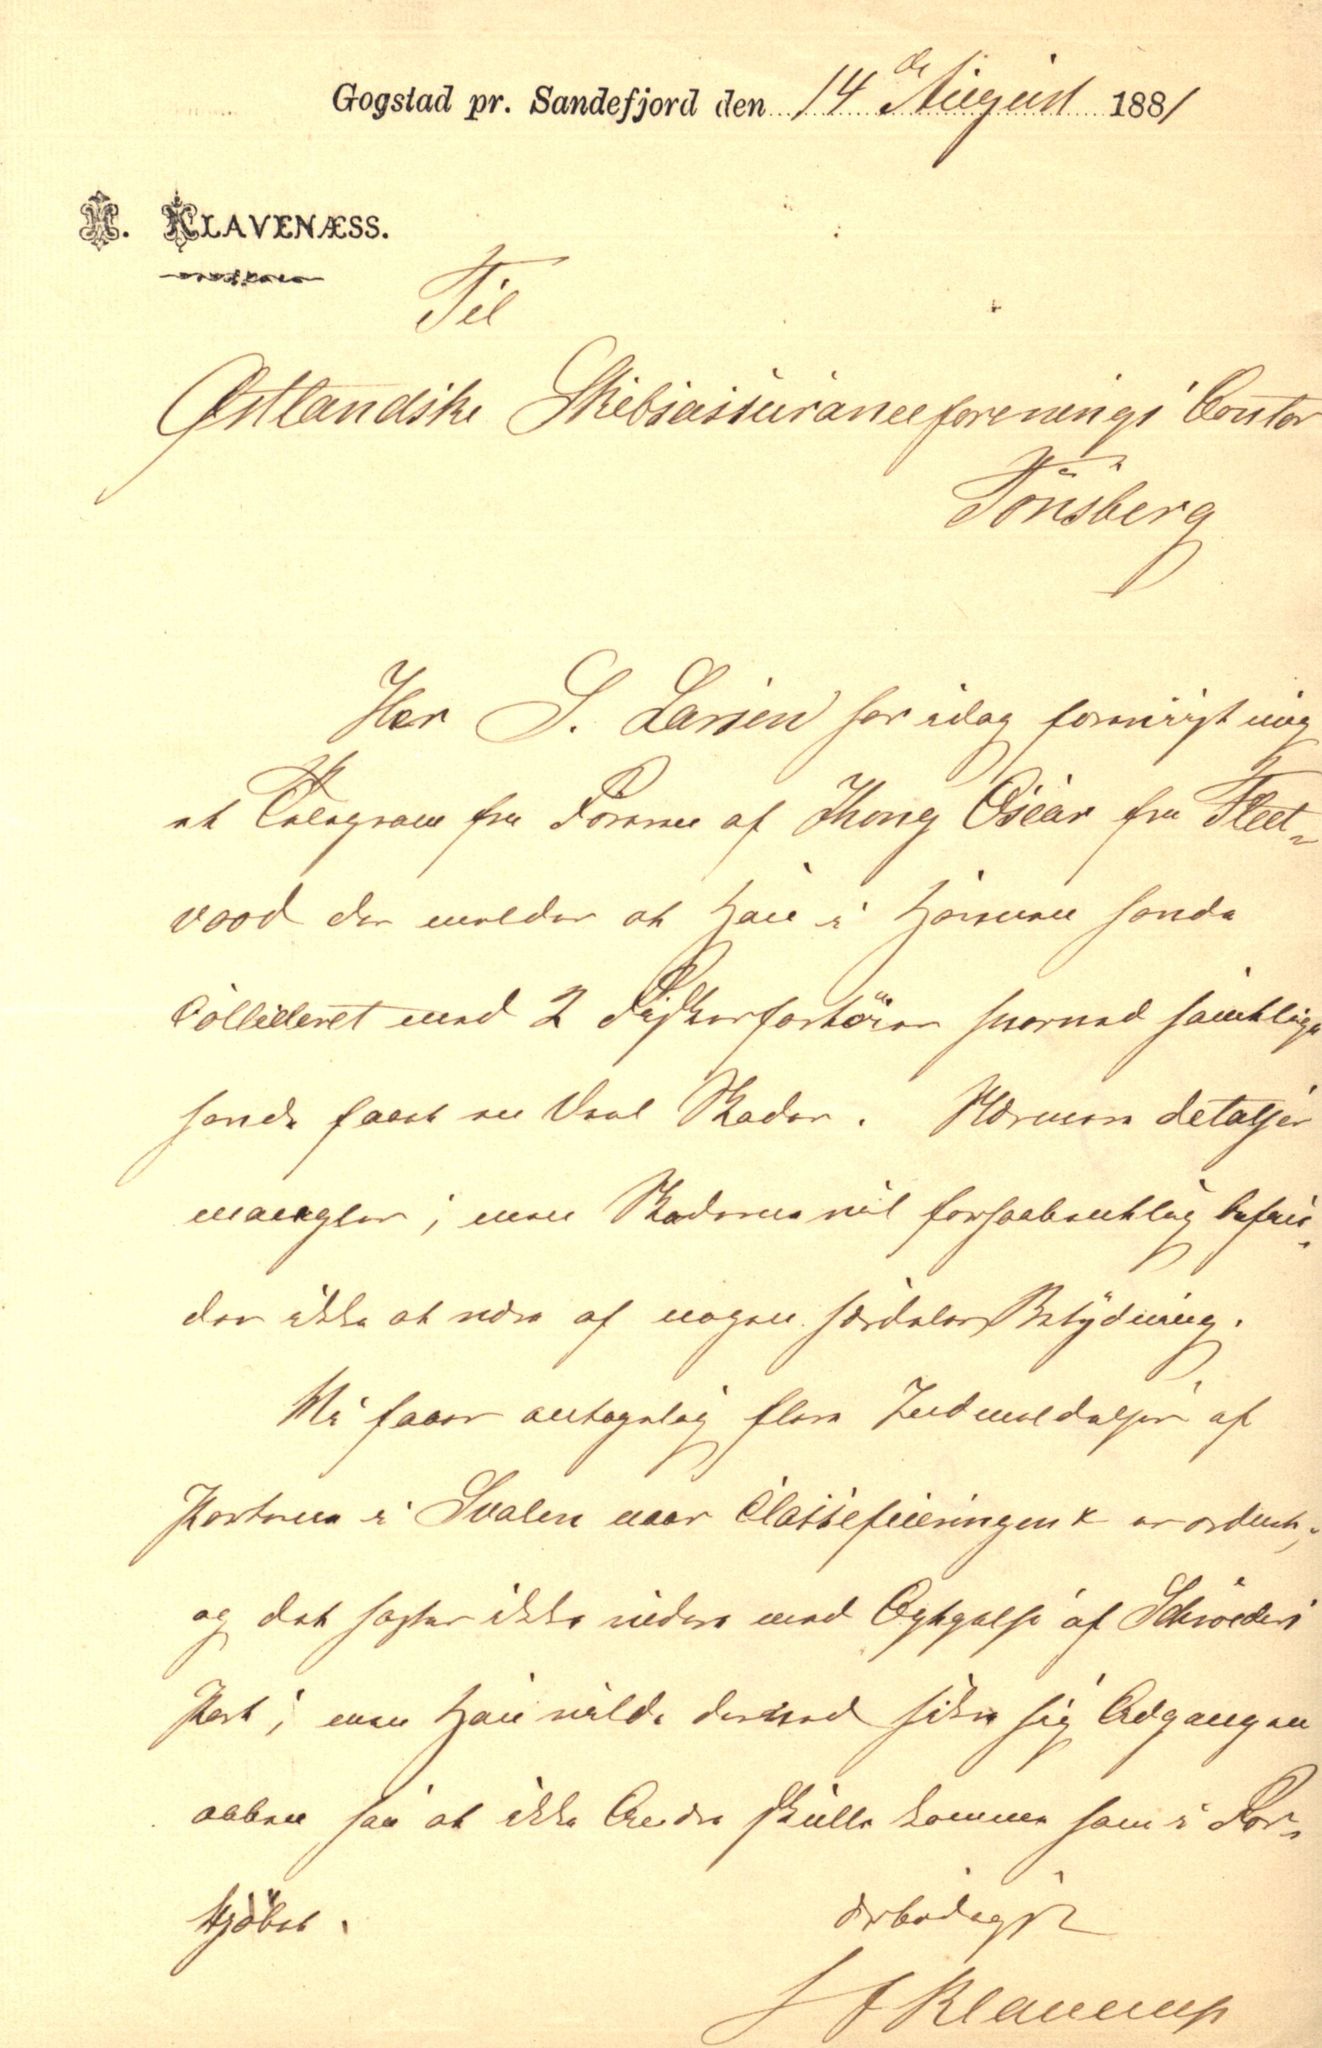 Gogstad pr. Sandefjord den 14de August 1881
H. KLAVENÆSS.
Til
Østlandske Skibsassuranceforenings Contor
Tönsberg
Herr S. Larsen har idag forevist mig
et Telegram fra Föreren af Kong Oscar fra Fleet-
vood der melder at han i Havnen havde
collideret med 2 Fiskerfartöier hvorved samtlige
havde faaet en Deel Skader. Nærmere detaljer
mangler; men Skaderne vil forhaabentlig befin-
des ikke at være af nogen særdeles Betydning.
Vi faaer antagelig flere Indmeldelser af
Parterne i Svalen naar Classeficeringen er ordnet,
og det haster ikke videre med Optagelse af Schröders
Part; men han vilde dermed sikre sig Adgangen
aaben saa at ikke Andre skulle komme ham i For-
kjöbet.
Ærbödigst
H Klavenæss